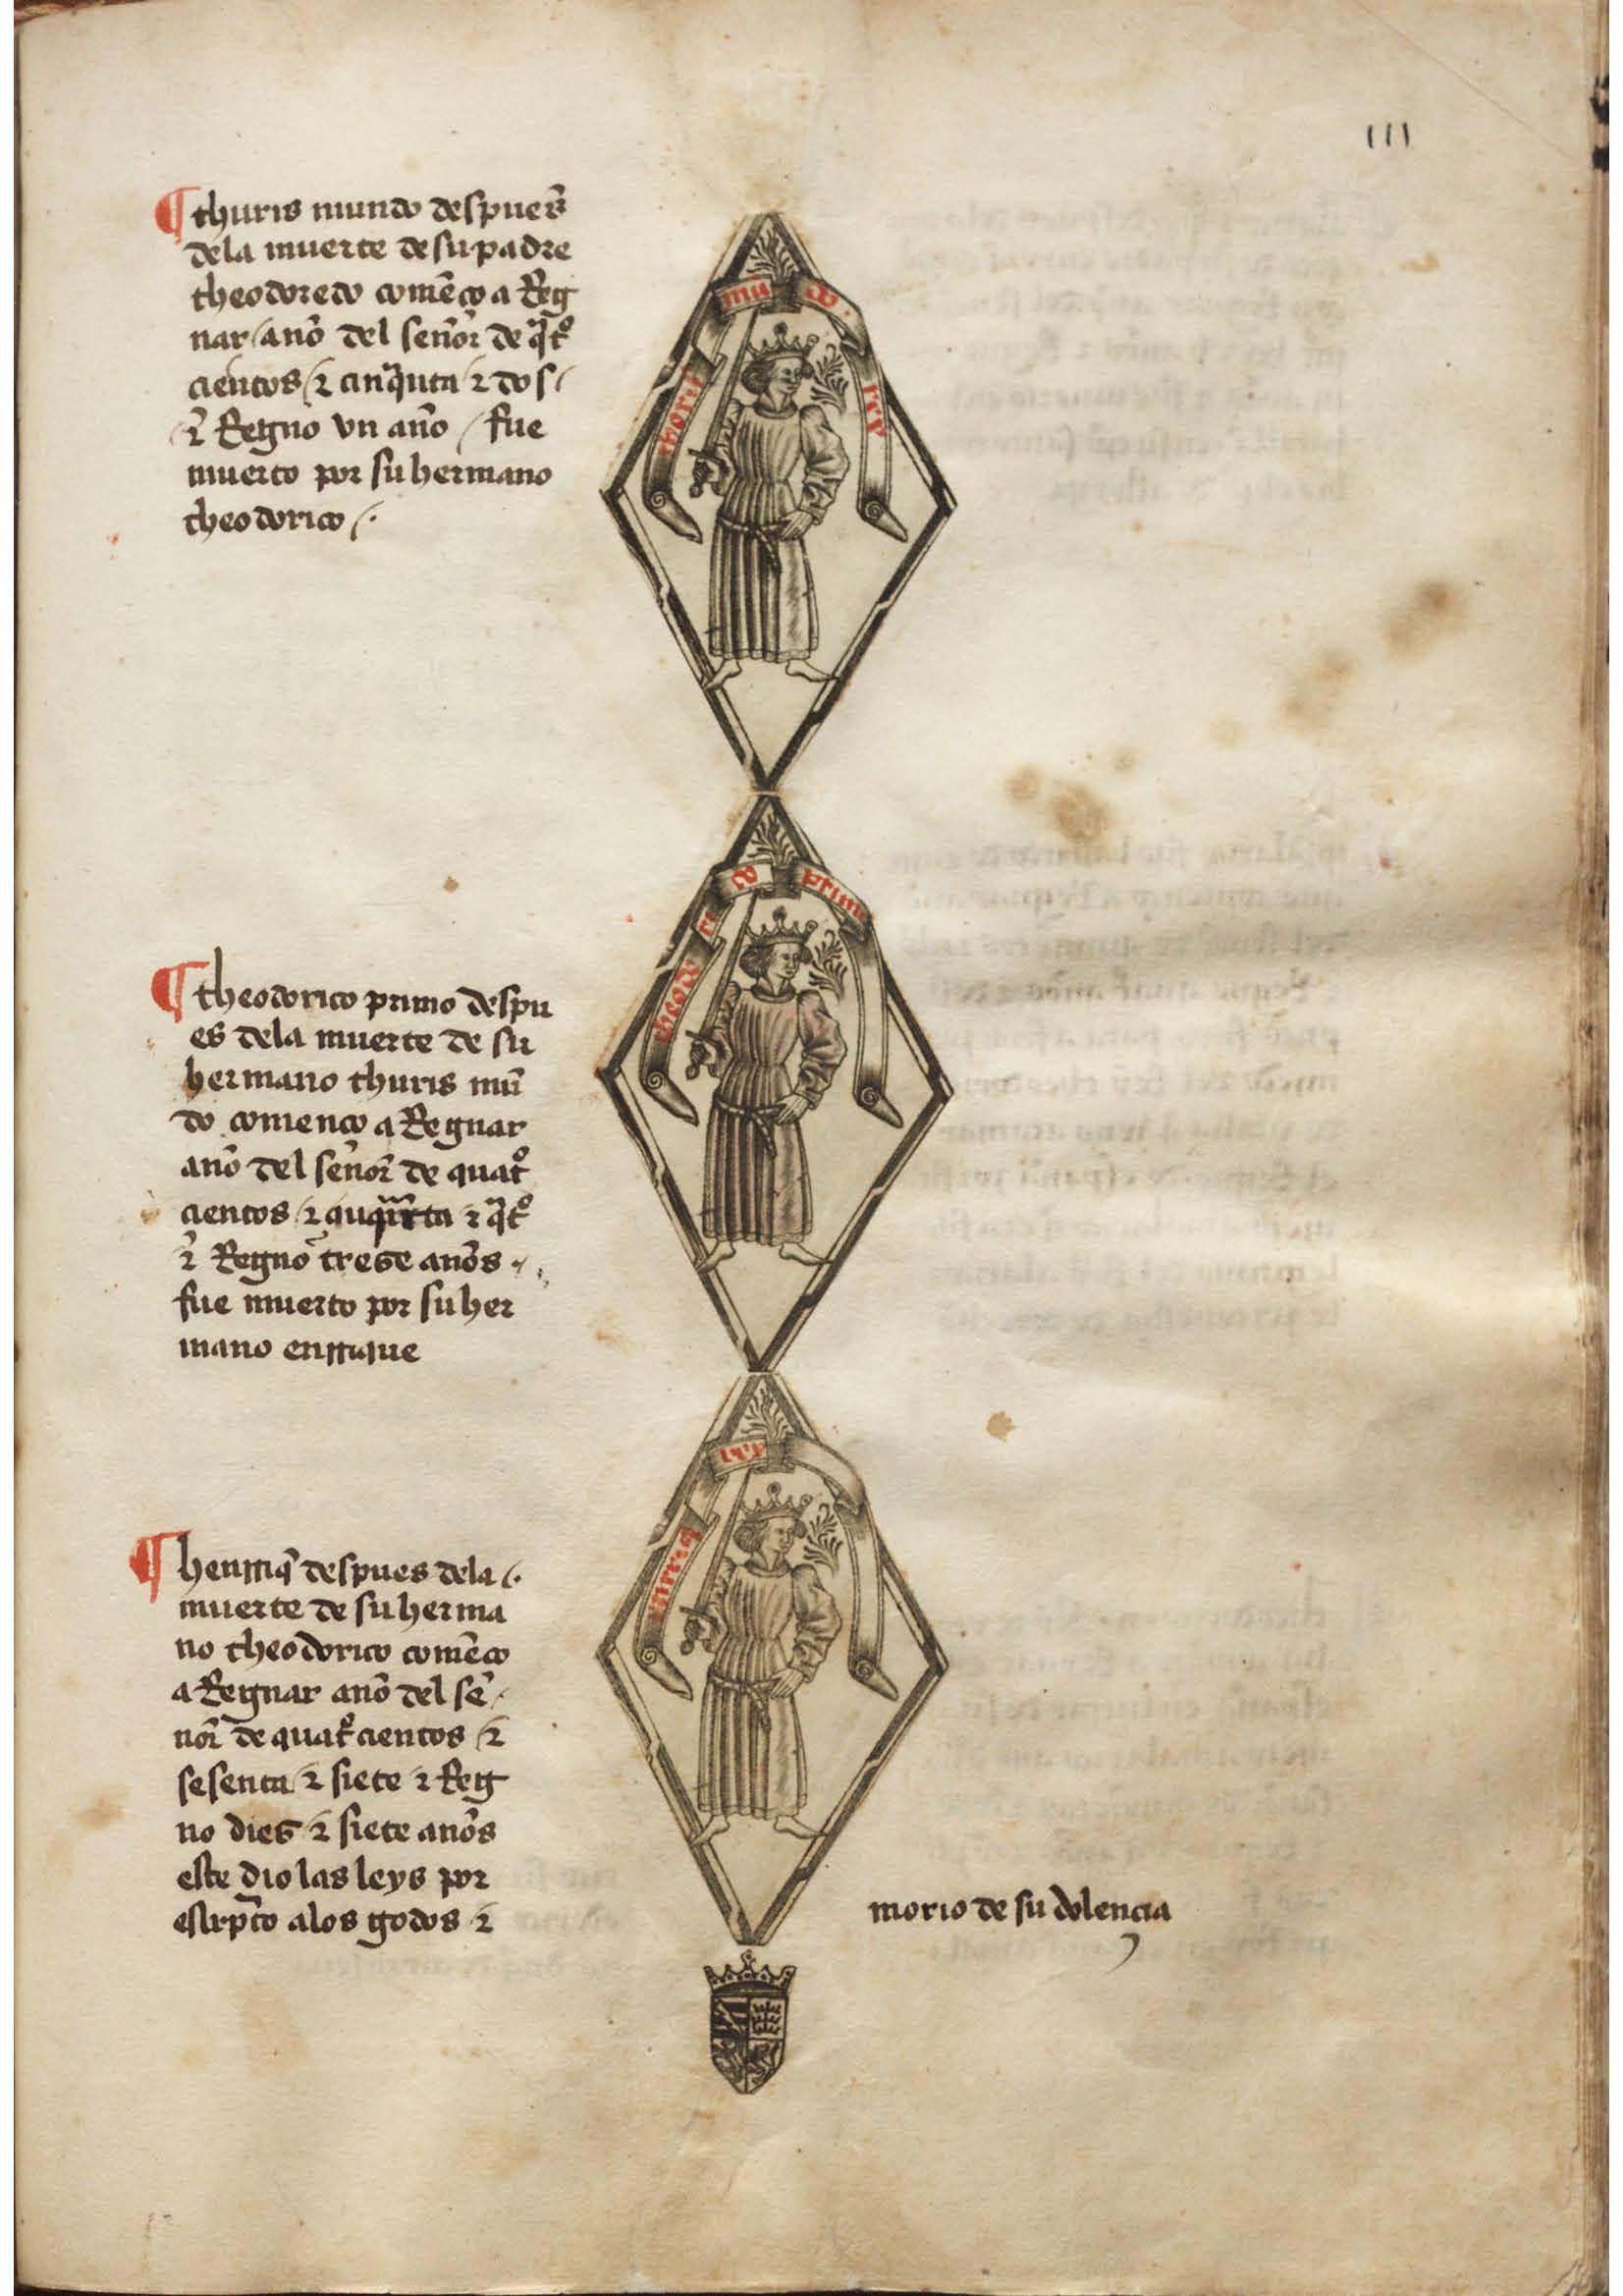 III
¶ thuris mundo despues̄
dela muerte de su padre
theodoredo comẽço a Reg
nar / año del señor de q̃tº
cientos / ⁊ cinq̃nta / ⁊ dos /
⁊ Regno vn año / fue
muerto por su hermano
theodorico /.
mũ do.
thoris
¶ theodorico primo despu
es dela muerte de su
hermano thuris mũ
do comenco a Regnar
año del señor de quatº
cientos / ⁊ ⁊ q̃tº
⁊ Regno trese años
fue muerto por su her
mano enrrique
theode ri co primo
¶ henrriq̃ despues dela /.
muerte de su herma
no theodorico comẽco
a Regnar año del se
ñor de quatºcientos / ⁊
sesenta / ⁊ siete ⁊ Reg
no dies ⁊ siete años
este dio las leys por
escrpto alos godos ⁊
enrriq
morio de su dolencia